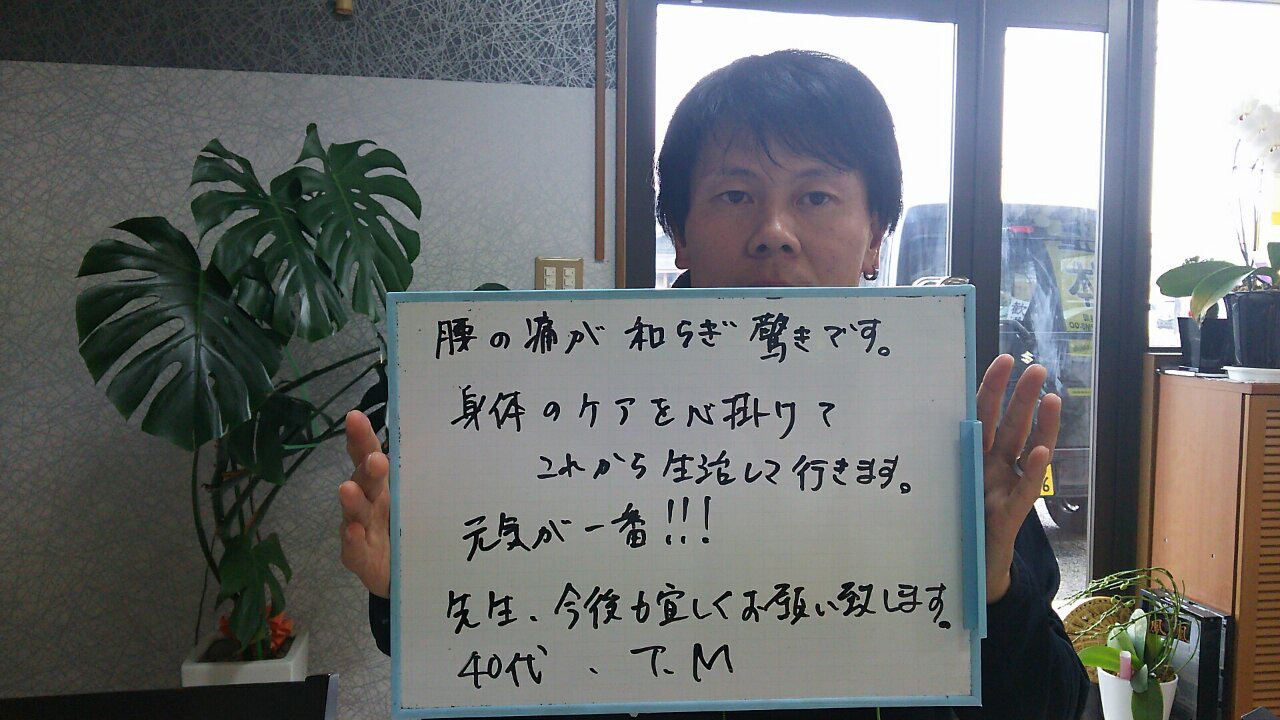 腰の痛が和らぎ驚きです。
身体のケアを心掛けて
これから生活して行きます。
元気が一番!!!
先生、今後も宜しくお願い致します。
40代、T.M